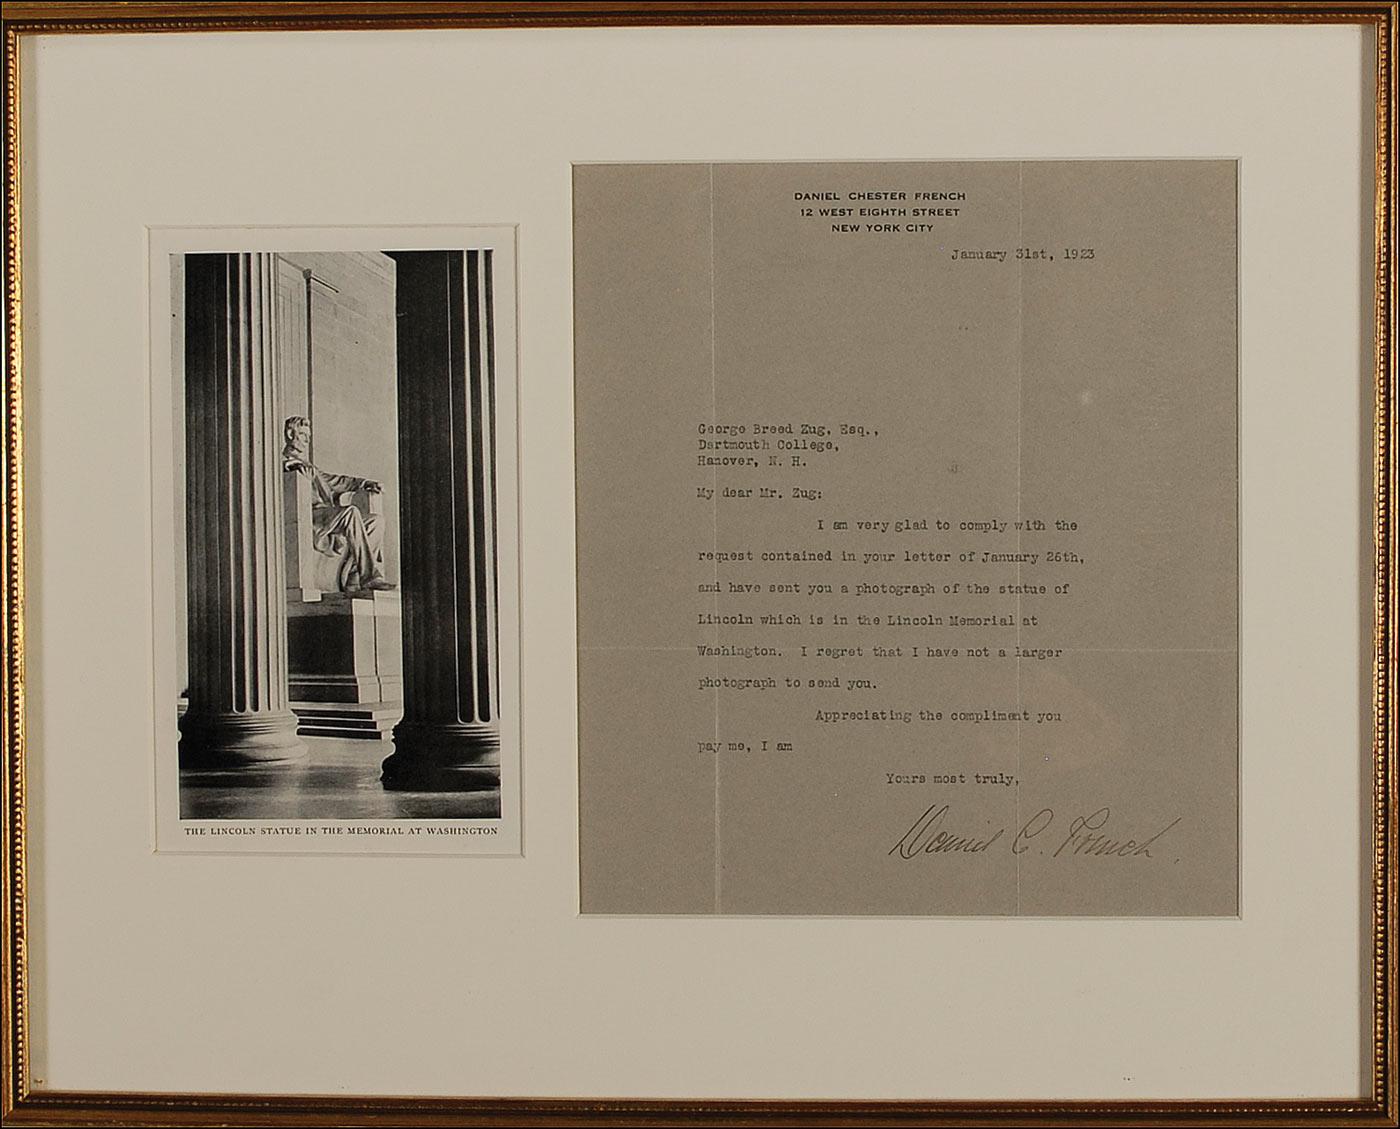 DANIEL CHESTER FRENCH
12 WEST EIGHTH STREET
NEW YORK CITY
January 31st, 1923
George Breed Zug, Esq.,
Dartmouth College,
Hanover, N. H.
My dear Mr. Zug:
I am very glad to comply with the
request contained in your letter of January 26th,
and have sent you a photograph of the statue of
Lincoln which is in the Lincoln Memorial at
Washington. I regret that I have not a larger
photograph to send you.
Appreciating the compliment you
pay me, I am
Yours most truly,
Daniel C. French
THE LINCOLN STATUE IN THE MEMORIAL AT WASHINGTON